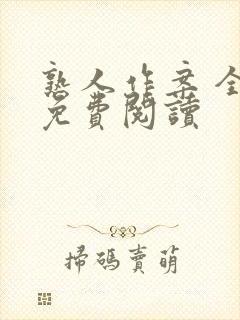 熟人作案全
免費閱讀
掃碼賣萌